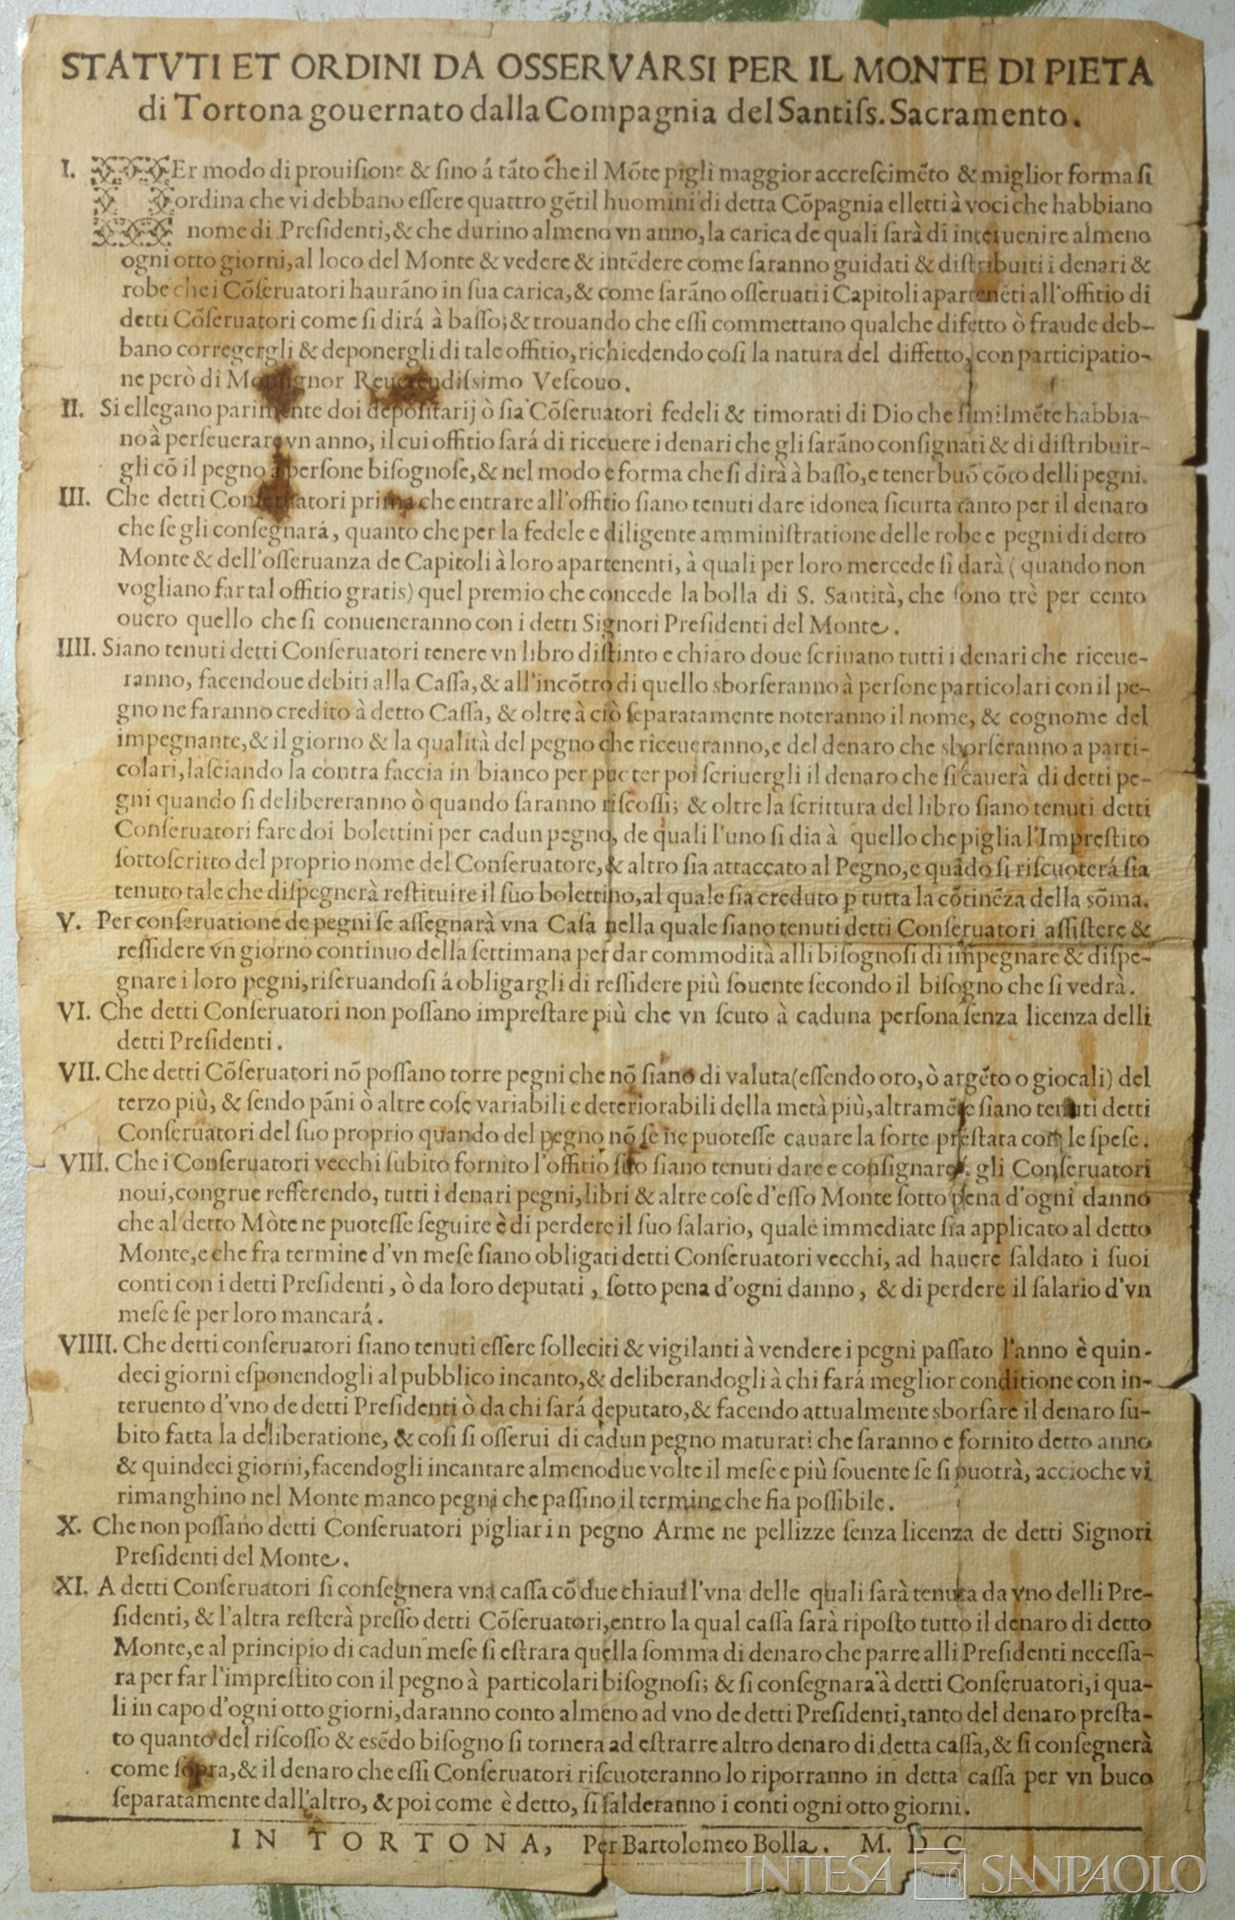 STATVTI ET ORDINI DA OSSERVARSI PER IL MONTE DI PIETA
di Tortona gouernato dalla Compagnia del Santiſs. Sacramento.
I. PEr modo di prouiſione & ſino á tãto che il Mõte pigli maggior accreſcimẽto & miglior forma ſi
ordina che vi debbano eſſere quattro gẽtil huomini di detta Cõpagnia elletti à voci che habbiano
nome di Preſidenti,& che durino almeno vn anno, la carica de quali ſarà di interuenire almeno
ogni otto giorni, al loco del Monte & vedere & intẽdere come ſaranno guidati & diſtribuiti i denari &
robe che i Cõſeruatori haurãno in ſua carica,& come ſarãno oſſeruati i Capitoli apartenẽti all'offitio di
detti Cõſeruatori come ſi dirá à baſſo;& trouando che eſſi commettano qualche difetto ò fraude deb-
bano corregergli & deponergli di tale offitio, richiedendo coſi la natura del diffetto, con participatio-
ne però di Monſignor Reuerendiſsimo Veſcouo.
II. Si ellegano parimente doi depoſitarij ò ſia Cõſeruatori fedeli & timorati di Dio che ſimilmẽte habbia-
no à perſeuerare vn anno, il cui offitio ſará di riceuere i denari che gli ſarãno conſignati & di diſtribuir-
gli cõ il pegno à perſone biſognoſe,& nel modo e forma che ſi dirà à baſſo, e tener buõ cõto delli pegni.
III. Che detti Conſeruatori prima che entrare all'offitio ſiano tenuti dare idonea ſicurta tanto per il denaro
che ſe gli conſegnará, quanto che per la fedele e diligente amminiſtratione delle robe e pegni di detto
Monte & dell'oſſeruanza de Capitoli à loro apartenenti, à quali per loro mercede ſi darà (quando non
vogliano far tal offitio gratis) quel premio che concede la bolla di S. Santità, che ſono trè per cento
ouero quello che ſi conueneranno con i detti Signori Preſidenti del Monte.
IIII. Siano tenuti detti Conſeruatori tenere vn libro diſtinto e chiaro doue ſcriuano tutti i denari che riceue-
ranno, facendoue debiti alla Caſſa,& all'incõtro di quello sborſeranno à perſone particolari con il pe-
gno ne faranno credito à detto Caſſa, & oltre à ciò ſeparatamente noteranno il nome, & cognome del
impegnante,& il giorno & la qualità del pegno che riceueranno, e del denaro che sborſeranno a parti-
colari, laſciando la contra faccia in bianco per pueter poi ſcriuergli il denaro che ſi cauerà di detti pe-
gni quando ſi delibereranno ò quando ſaranno riſcoſſi; & oltre la ſcrittura del libro ſiano tenuti detti
Conſeruatori fare doi bolettini per cadun pegno, de quali l'uno ſi dia à quello che piglia l'Impreſtito
ſottoſcritto del proprio nome del Conſeruatore, & altro ſia attaccato al Pegno, e quãdo ſi riſcuoterá ſia
tenuto tale che diſpegnerà reſtituire il ſuo bolettino, al quale ſia creduto p tutta la cõtinẽza della sõma.
V. Per conſeruatione de pegni ſe aſſegnarà vna Caſa nella quale ſiano tenuti detti Conſeruatori aſſiſtere &
reſſidere vn giorno continuo della ſettimana per dar commodità alli biſognoſi di impegnare & diſpe-
gnare i loro pegni, riſeruandoſi á obligargli di reſſidere più ſouente ſecondo il biſogno che ſi vedrà.
VI. Che detti Conſeruatori non poſſano impreſtare più che vn ſcuto à caduna perſona ſenza licenza delli
detti Preſidenti.
VII. Che detti Cõſeruatori nõ poſſano torre pegni che nõ ſiano di valuta(eſſendo oro, ò argẽto o giocali) del
terzo più, & ſendo pãni ò altre coſe variabili e deteriorabili della metà più, altramẽte ſiano tenuti detti
Conſeruatori del ſuo proprio quando del pegno nõ ſe ne puoteſſe cauare la ſorte preſtata con le ſpeſe.
VIII. Che i Conſeruatori vecchi ſubito fornito l'offitio ſuo ſiano tenuti dare e conſignare gli Conſeruatori
noui, congrue refferendo, tutti i denari pegni, libri & altre coſe d'eſſo Monte ſotto pena d'ogni danno
che al detto Mòte ne puoteſſe ſeguire è di perdere il ſuo ſalario, quale immediate ſia applicato al detto
Monte, e che fra termine d'vn meſe ſiano obligati detti Conſeruatori vecchi, ad hauere ſaldato i ſuoi
conti con i detti Preſidenti, ò da loro deputati, ſotto pena d'ogni danno, & di perdere il ſalario d'vn
meſe ſe per loro mancará.
VIIII. Che detti conſeruatori ſiano tenuti eſſere ſolleciti & vigilanti à vendere i pegni paſſato l'anno è quin-
deci giorni eſponendogli al pubblico incanto,& deliberandogli à chi fará meglior conditione con in-
teruento d'vno de detti Preſidenti ò da chi ſará deputato,& facendo attualmente sborſare il denaro ſu-
bito fatta la deliberatione, & coſi ſi oſſerui di cadun pegno maturati che ſaranno e fornito detto anno
& quindeci giorni, facendogli incantare almeno due volte il meſe e più ſouente ſe ſi puotrà, accioche vi
rimanghino nel Monte manco pegni che paſſino il termine che ſia poſſibile.
X. Che non poſſano detti Conſeruatori pigliar in pegno Arme ne pellizze ſenza licenza de detti Signori
Preſidenti del Monte.
XI. A detti Conſeruatori ſi conſegnera vna caſſa cõ due chiaui l'vna delle quali ſarà tenuta da vno delli Pre-
ſidenti, & l'altra reſterà preſſo detti Cõſeruatori, entro la qual caſſa ſarà ripoſto tutto il denaro di detto
Monte, e al principio di cadun meſe ſi eſtrara quella ſomma di denaro che parre alli Preſidenti neceſſa-
ra per far l'impreſtito con il pegno à particolari biſognoſi; & ſi conſegnara à detti Conſeruatori, i qua-
li in capo d'ogni otto giorni, daranno conto almeno ad vno de detti Preſidenti, tanto del denaro preſta-
to quanto del riſcoſſo & eſẽdo biſogno ſi tornera ad eſtrarre altro denaro di detta caſſa,& ſi conſegnerà
come ſopra,& il denaro che eſſi Conſeruatori riſcuoteranno lo riporranno in detta caſſa per vn buco
ſeparatamente dall'altro, & poi come è detto, ſi ſalderanno i conti ogni otto giorni.
IN TORTONA, Per Bartolomeo Bolla. M. D C
INTESA SANPAOLO